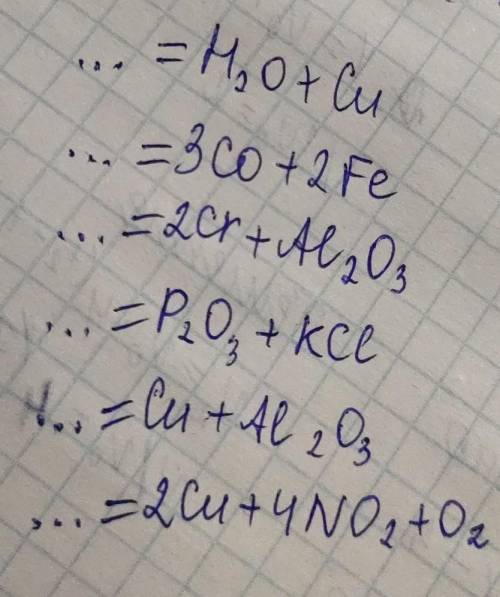 ... = H₂O + Cu
... = 3CO + 2Fe
... = 2Cr + Al₂O₃
... = P₂O₃ + KCl
... = Cu + Al₂O₃
... = 2Cu + 4NO₂ + O₂